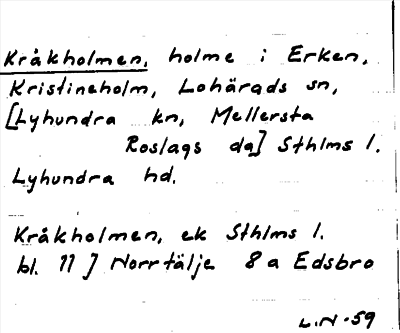 Kråkholmen, holme i Erken,
Kristineholm, Lohärads sn,
[Lyhundra kn, Mellersta
Roslags dg] Sthlms l.
Lyhundra hd.
Kråkholmen, ek Sthlms l.
bl. 11 J Norrtälje 8 a Edsbro
L.N-59